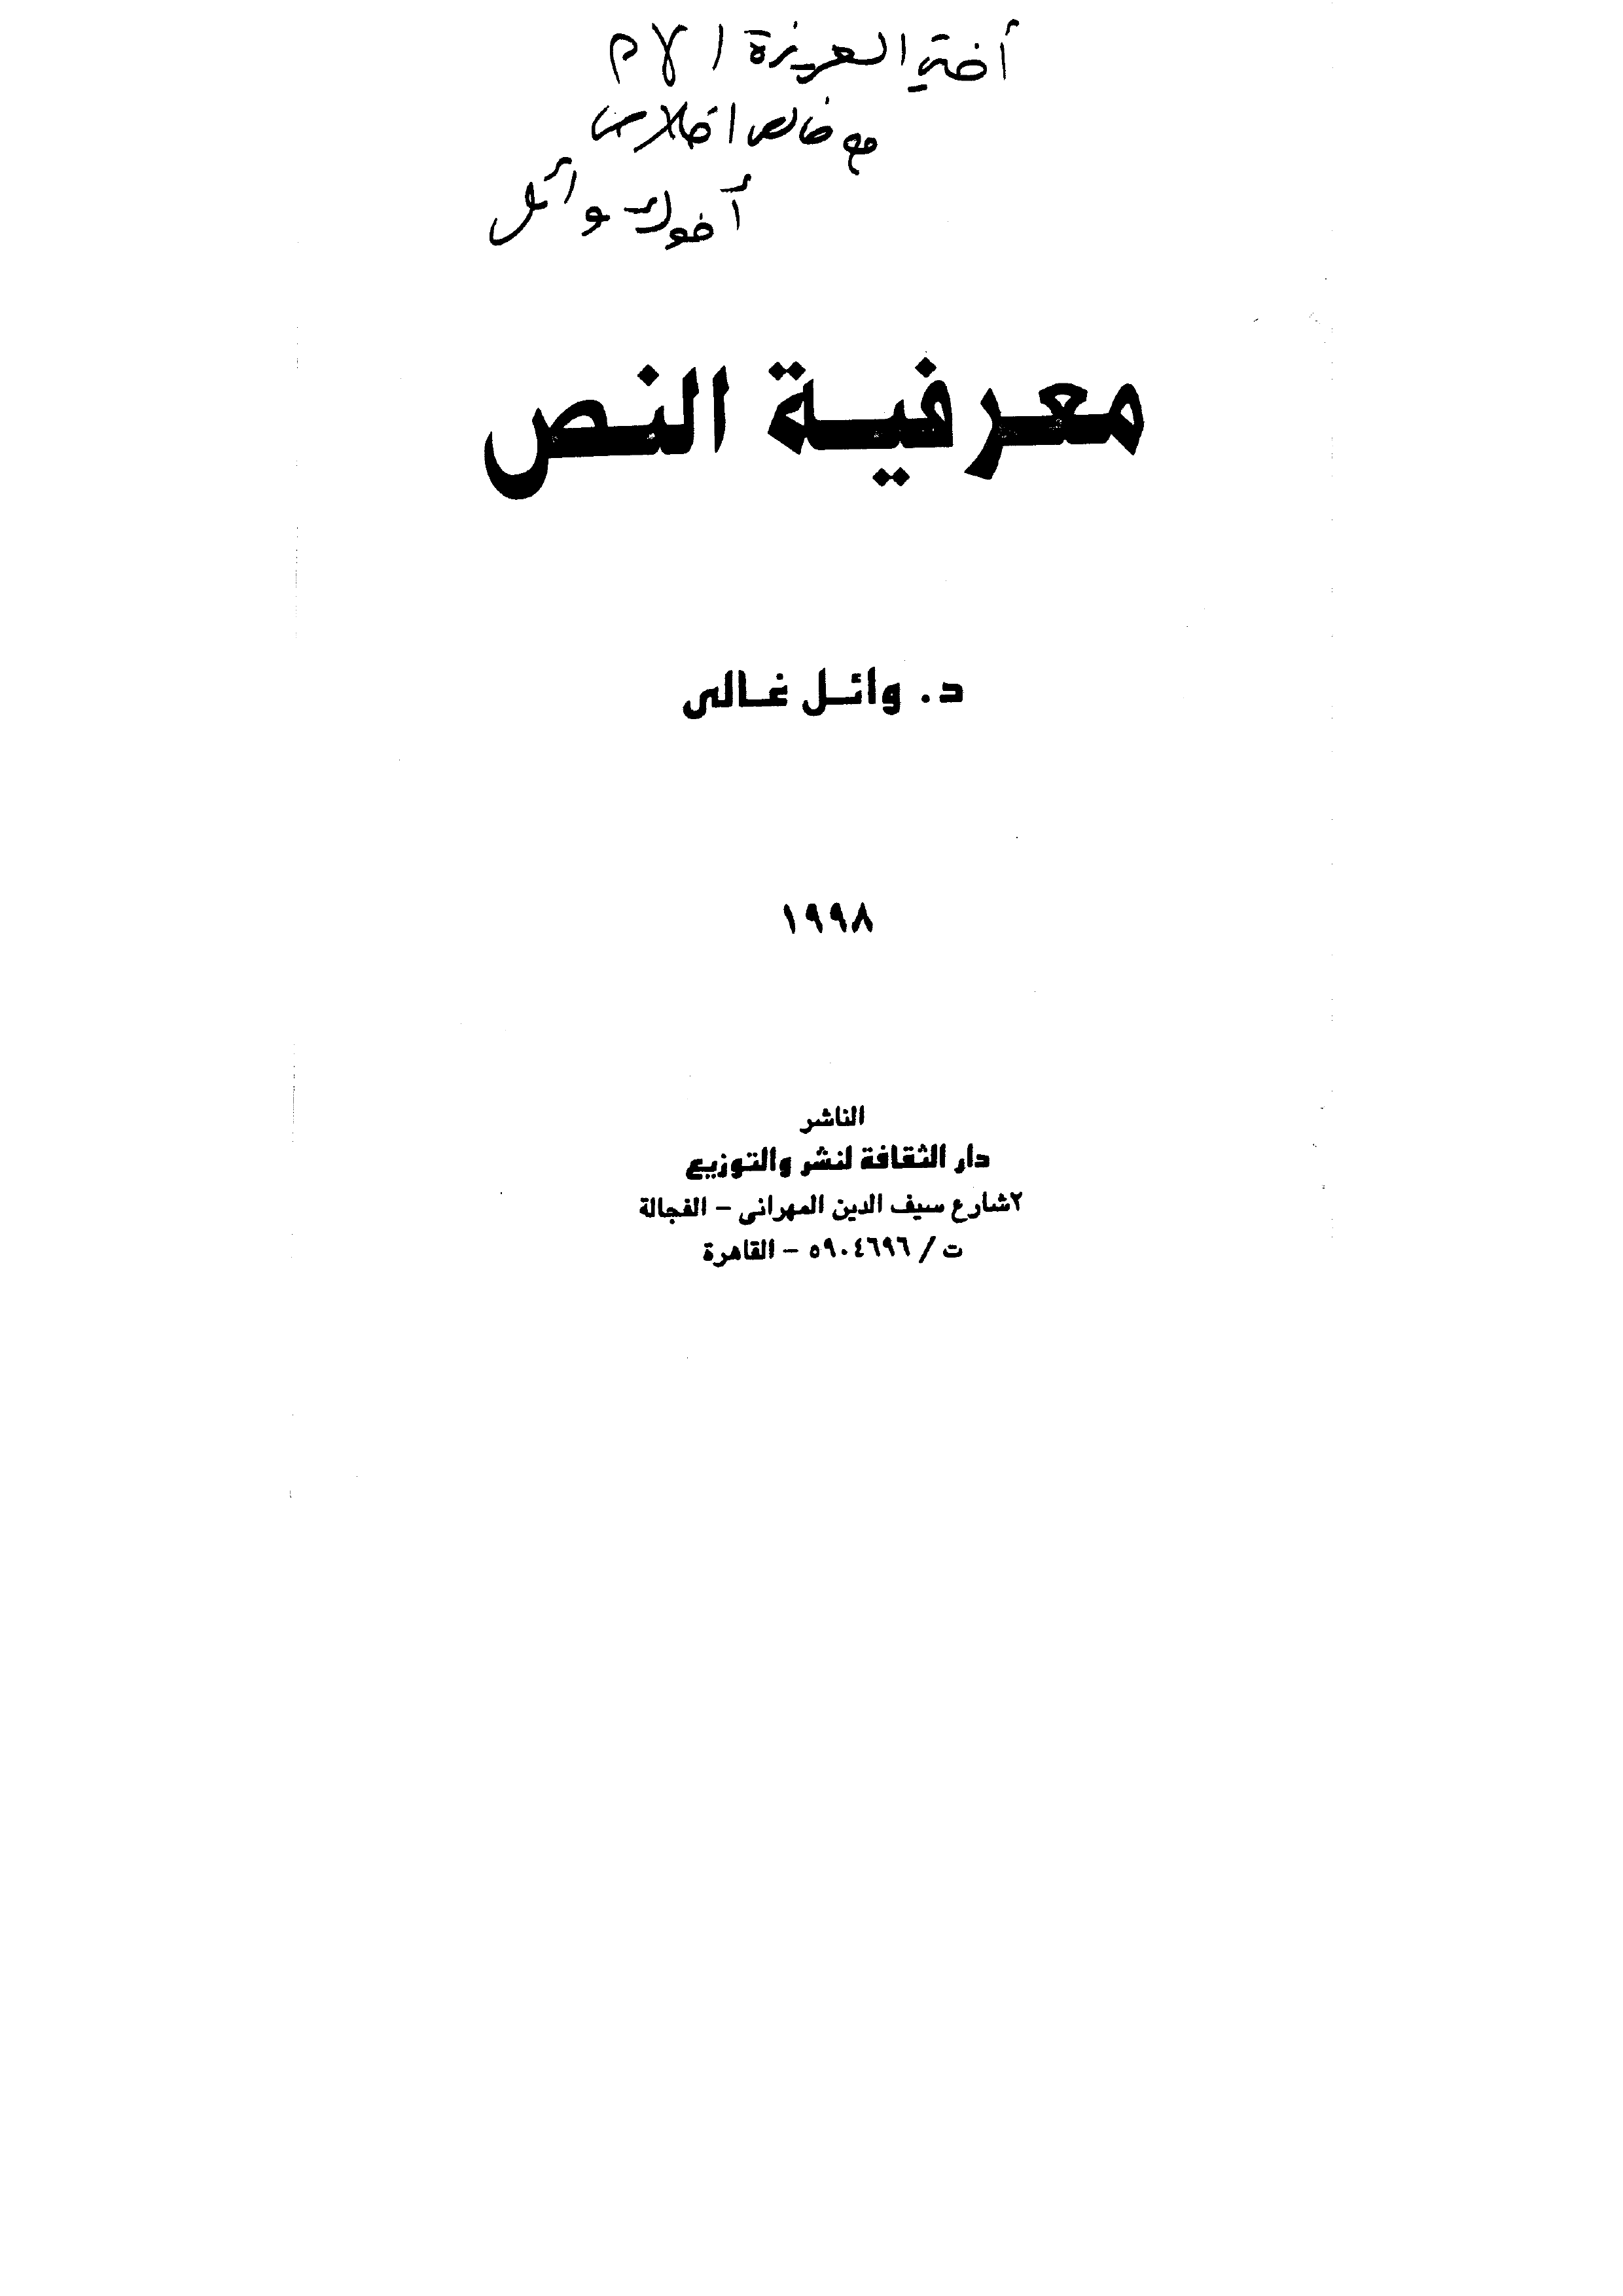 أختي العزيزة
مع خالص
أخوك وائل
معرفية النص
د. وائل غالى
١٩٩٨
الناشر
دار الثقافة لنشر والتوزيع
٢شارع سيف الدين المهرانى - الفجالة
ت / ٥٩٠٤٦٩٦ - القاهرة